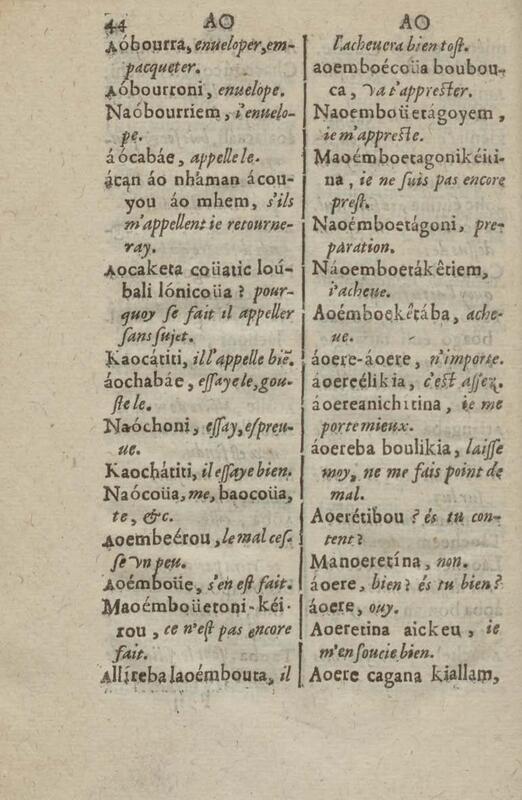 44 AO AO
Aóbourra, enueloper, em-
pacqueter.
Aóbourroni, enuelope.
Naóbourriem, i'enuelo-
pe.
áócabáe, appelle le.
átan áo nháman ácou-
you áo mhem, s'ils
m'appellent ie retourne-
ray.
Aocaketa coüatic loú-
bali lónicoüa? pour-
quoy se fait il appeller
sans sujet.
Kaocátiti, il l'appelle biē.
áochabáe, essaye le, gou-
ste le.
Naóchoni, essay, espreu-
ue.
Kaochátiti, il essaye bien.
Naócoüa, me, baocoüa,
te, &c.
Aoembeérou, le mal ces-
se vn peu.
Aoémboüe, s'en est fait.
Maoémboüetoni-kéi-
rou, ce n'est pas encore
fait.
Allíreba laoémbouta, il
l'acheuera bien tost.
aoemboécoüa boubou-
ca, va t'apprester.
Naoemboüetágoyem,
ie m'appreste.
Maoémboetagonikéiti-
na, ie ne suis pas encore
prest.
Naoémboetágoni, pre-
paration.
Náoemboetákêtiem,
i'acheue.
Aoémboekêtába, ache-
ue.
áoere-áoere, n'importe.
áoereélikia, c'est assez.
áoereanichitina, ie me
porte mieux.
áoereba boulikia, laisse
moy, ne me fais point de
mal.
Aoerétibou? és tu con-
tent?
Manoeretína, non.
áoere, bien? és tu bien?
áoere, ouy.
Aoeretina aickeu, ie
m'en soucie bien.
Aoere cagana kiallam,